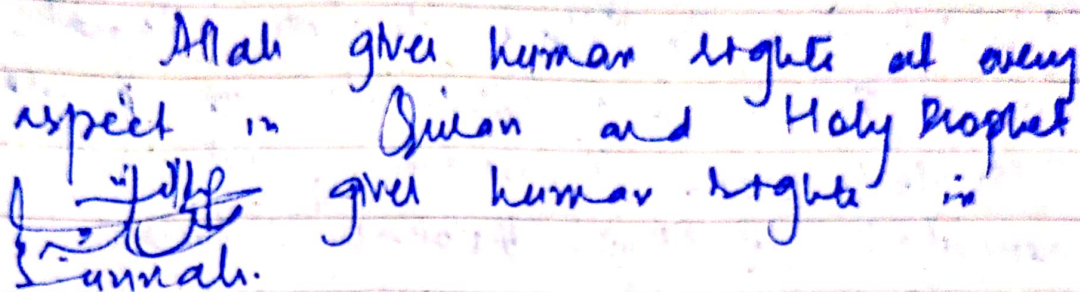 Allah gives human rights at every
aspect in Quran and Holy Prophet
صلى الله عليه وسلم gives human rights in
Sunnah.